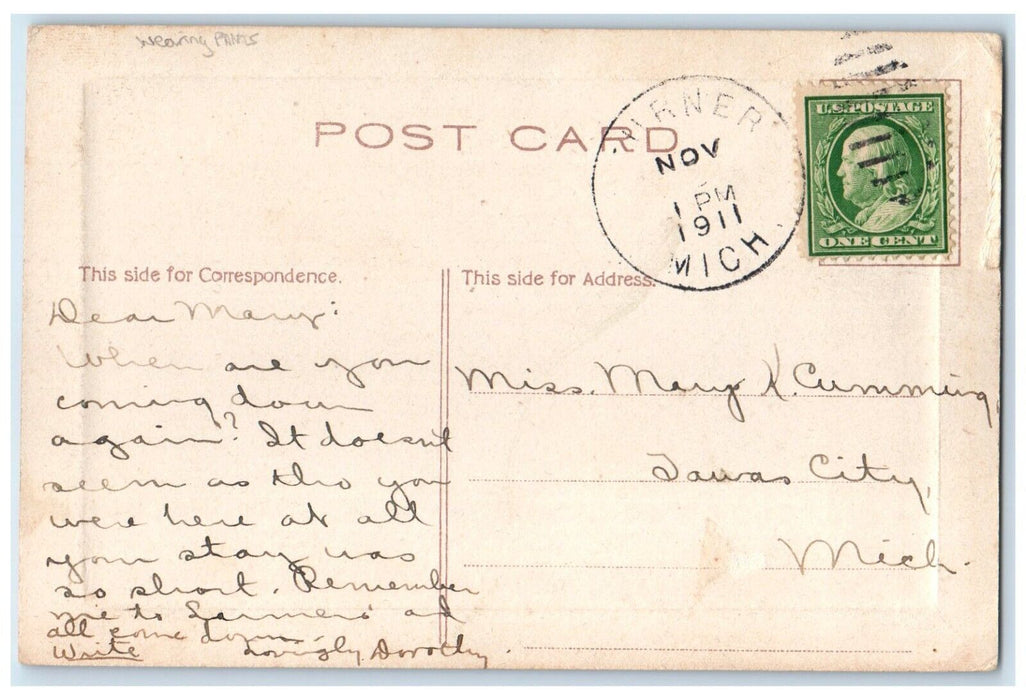 wearing PANTS
POST CARD
TURNER
NOV
1 PM
1911
MICH.
U.S. POSTAGE
ONE CENT
This side for Correspondence.
Dear Mary:
When are you
coming down
again? It doesn't
seem as tho you
were here at all
your stay was
so short. Remember
me to and
all come down.
Write Lovingly, Dorothy.
This side for Address.
Miss. Mary K. Cumming,
Tawas City,
Mich.